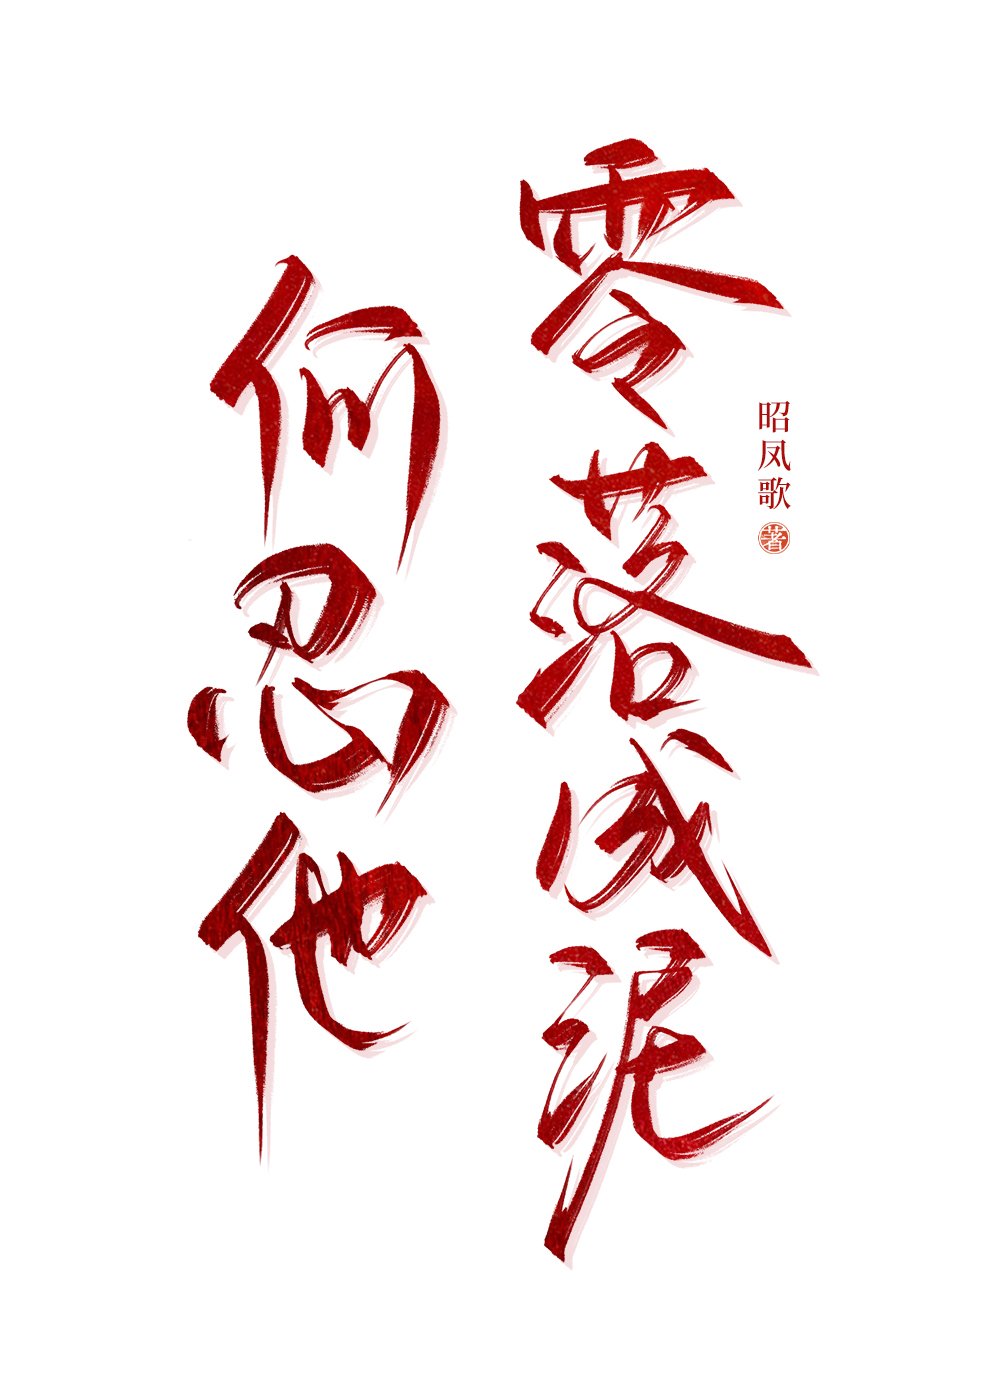 零落成泥
何忍他
昭凤歌 著